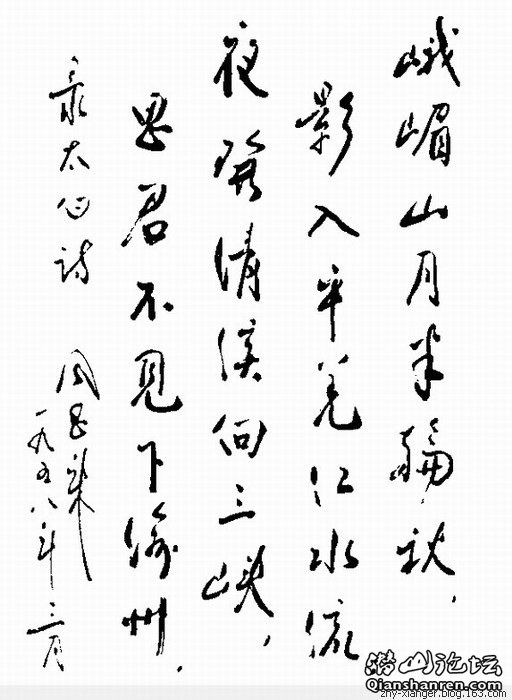 峨嵋山月半輪秋，
影入平羌江水流
夜發清溪向三峽，
思君不見下渝州．
录太白诗
周恩来
一九五八年三月
潜山论坛
Qianshanren.com
zhy-xianger.blog.163.com